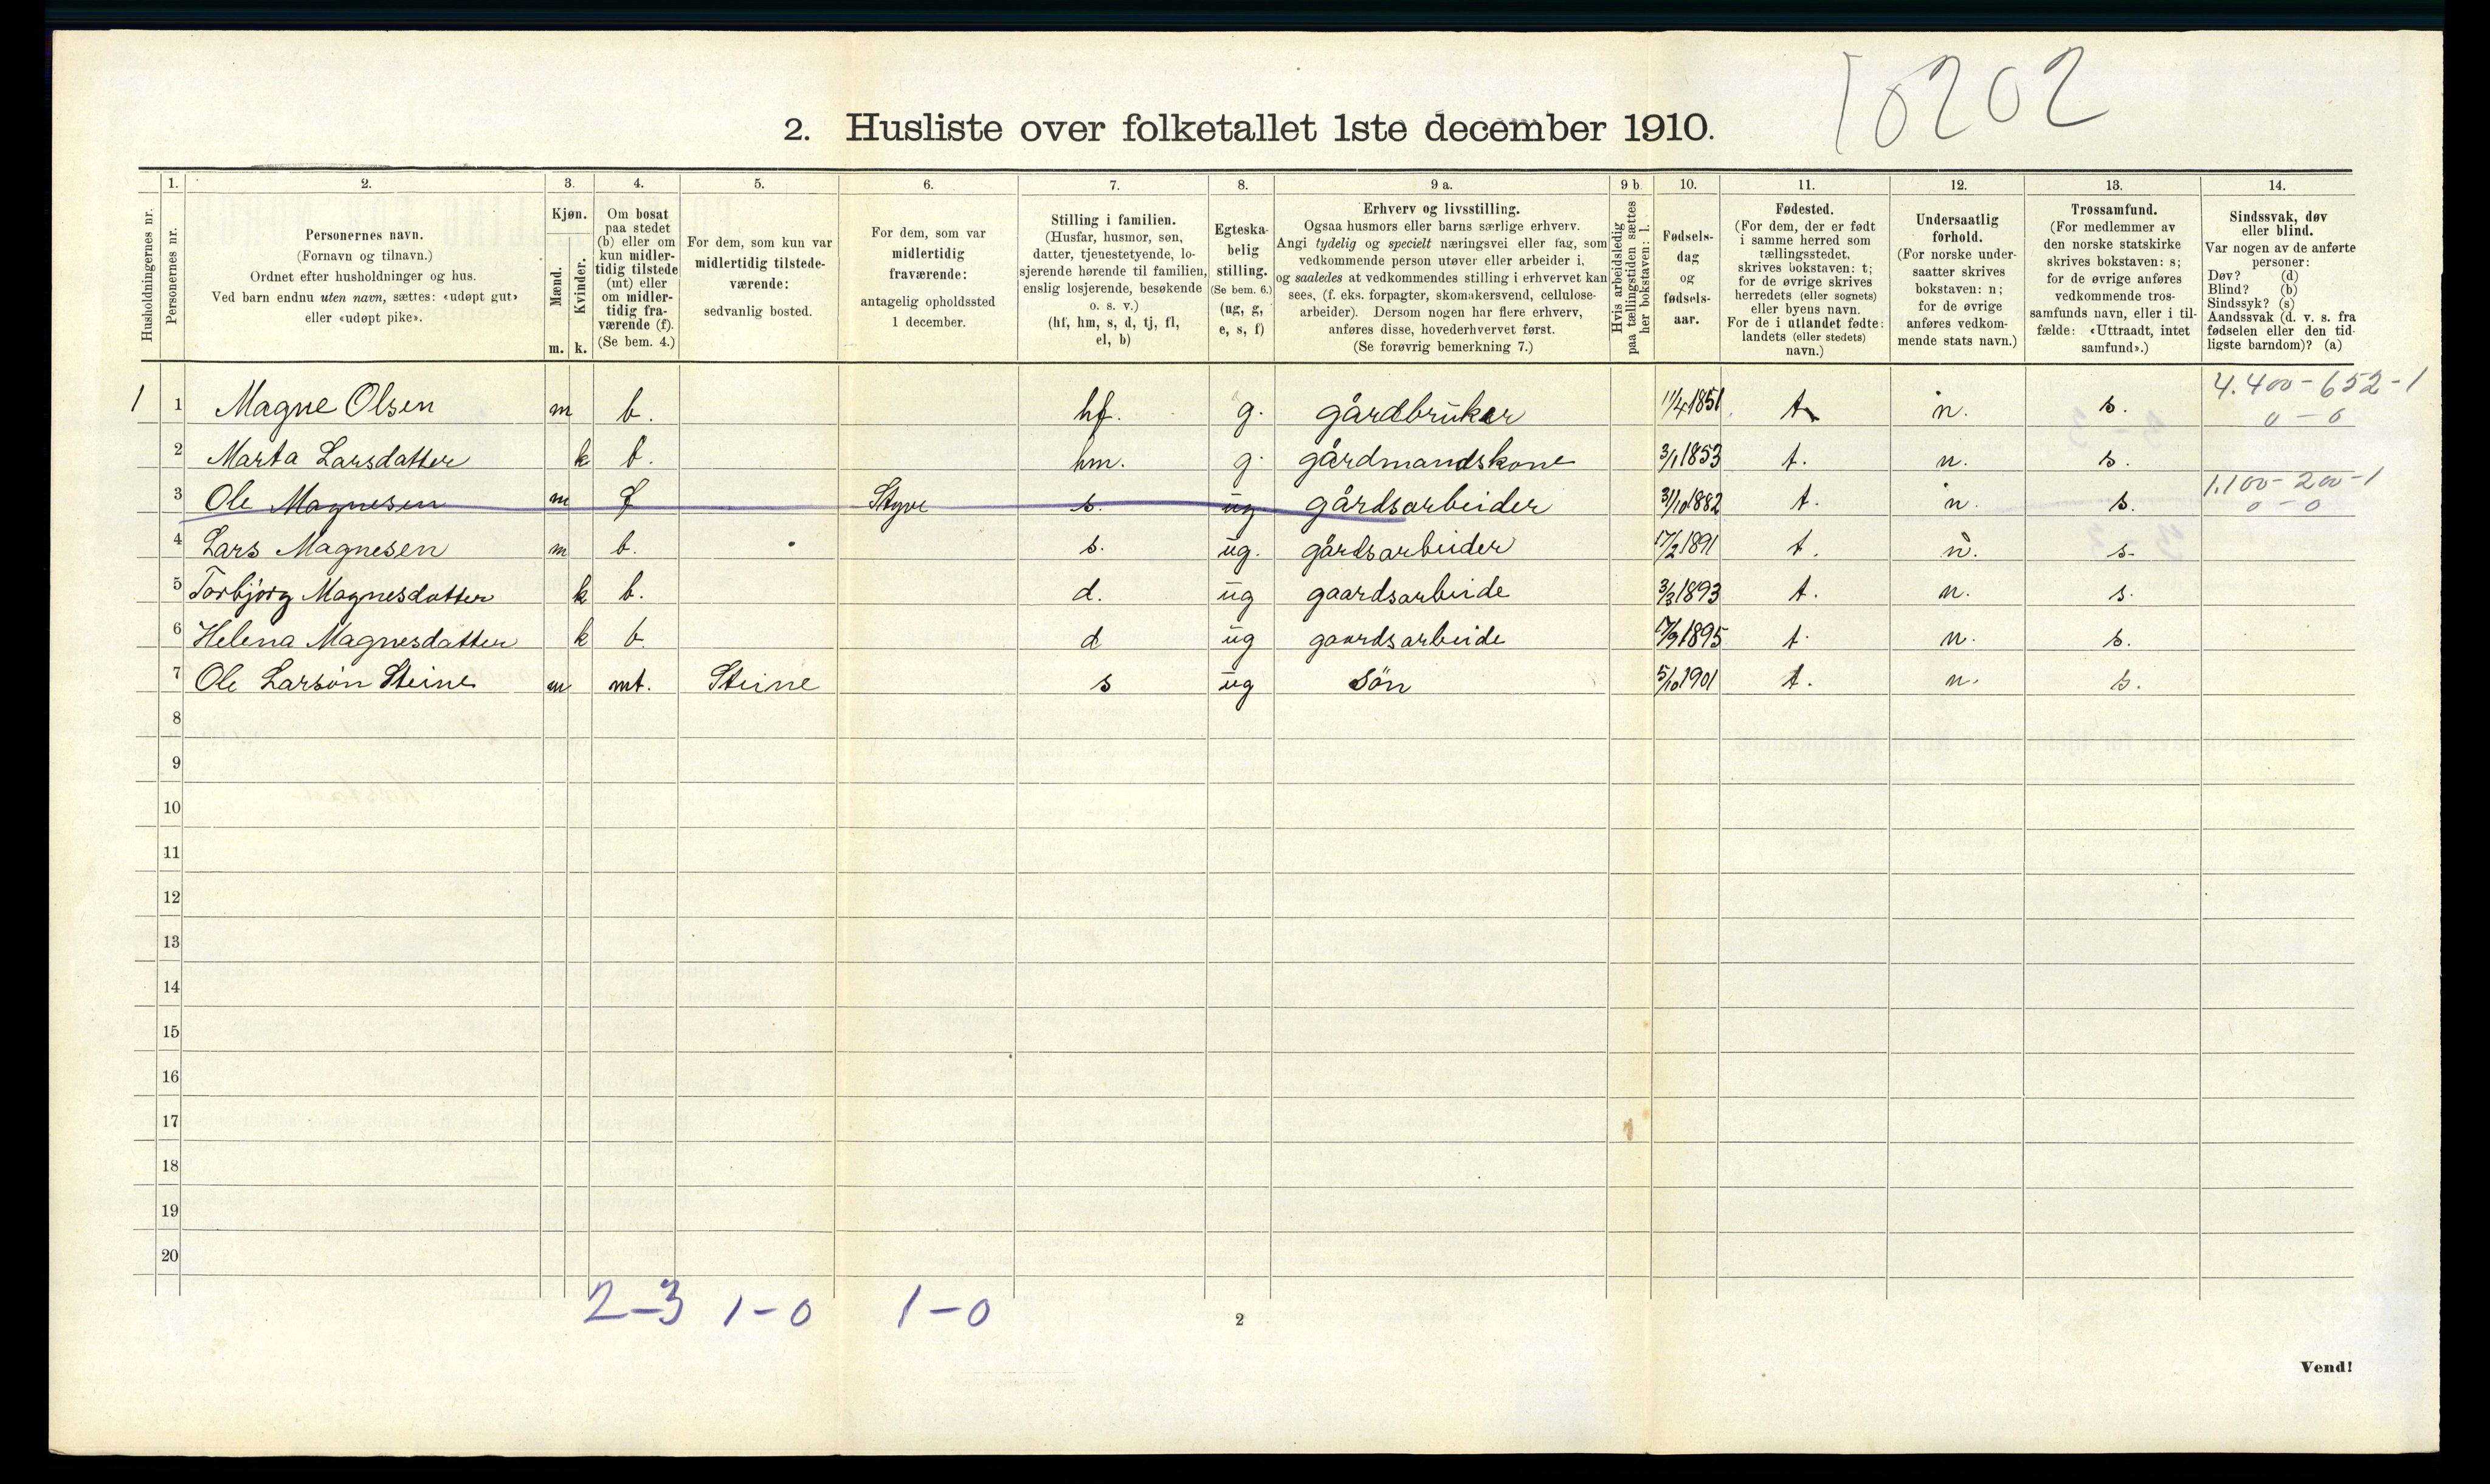 10202
2. Husliste over folketallet 1ste december 1910.
1. 2. 3. 4. 5. 6. 7. 8. 9 a. 9 b. 10. 11. 12. 13. 14.
Husholdningernes nr.
Personernes nr.
Personernes navn.
(Fornavn og tilnavn.)
Ordnet efter husholdninger og hus.
Ved barn endnu uten navn, sættes: «udøpt gut»
eller «udøpt pike».
Kjøn.
Mænd.
Kvinder.
m. k.
Om bosat
paa stedet
(b) eller om
kun midler-
tidig tilstede
(mt) eller
om midler-
tidig fra-
værende (f).
(Se bem. 4.)
For dem, som kun var
midlertidig tilstede-
værende:
sedvanlig bosted.
For dem, som var
midlertidig
fraværende:
antagelig opholdssted
1 december.
Stilling i familien.
(Husfar, husmor, søn,
datter, tjenestetyende, lo-
sjerende hørende til familien,
enslig losjerende, besøkende
o. s. v.)
(hf, hm, s, d, tj, fl,
el, b)
Egteska-
belig
stilling.
(Se bem. 6.)
(ug, g,
e, s, f)
Erhverv og livsstilling.
Ogsaa husmors eller barns særlige erhverv.
Angi tydelig og specielt næringsvei eller fag, som
vedkommende person utøver eller arbeider i,
og saaledes at vedkommendes stilling i erhvervet kan
sees, (f. eks. forpagter, skomakersvend, cellulose-
arbeider). Dersom nogen har flere erhverv,
anføres disse, hovederhvervet først.
(Se forøvrig bemerkning 7.)
Hvis arbeidsledig
paa tællingstiden sættes
her bokstaven: l.
Fødsels-
dag
og
fødsels-
aar.
Fødested.
(For dem, der er født
i samme herred som
tællingsstedet,
skrives bokstaven: t;
for de øvrige skrives
herredets (eller sognets)
eller byens navn.
For de i utlandet fødte:
landets (eller stedets)
navn.)
Undersaatlig
forhold.
(For norske under-
saatter skrives
bokstaven: n;
for de øvrige
anføres vedkom-
mende stats navn.)
Trossamfund.
(For medlemmer av
den norske statskirke
skrives bokstaven: s;
for de øvrige anføres
vedkommende tros-
samfunds navn, eller i til-
fælde: «Uttraadt, intet
samfund».)
Sindssvak, døv
eller blind.
Var nogen av de anførte
personer:
Døv? (d)
Blind? (b)
Sindssyk? (s)
Aandssvak (d. v. s. fra
fødselen eller den tid-
ligste barndom)? (a)
1 1 Magne Olsen m b. hf. g. gårdbruker 11/4 1851 t n. s. 4.400-652-1
0-0
2 Marta Larsdatter k b. hm. g. gårdmandskone 3/1 1853 t. n. s.
3 Ole Magnesen m f Styve s. ug gårdsarbeider 3/10 1882 t. n. s. 1.100-200-1
0-0
4 Lars Magnesen m b. s. ug. gårdsarbeider 17/2 1891 t. n. s.
5 Torbjørg Magnesdatter k b. d. ug gaardsarbeide 3/3 1893 t. n. s.
6 Helena Magnesdatter k b. d ug gaardsarbeide 17/9 1895 t. n. s.
7 Ole Larson Steine m mt. Steine s ug søn 5/10 1901 t. n. s.
8
9
10
11
12
13
14
15
16
17
18
19
20
2-3 1-0 1-0
2
Vend!